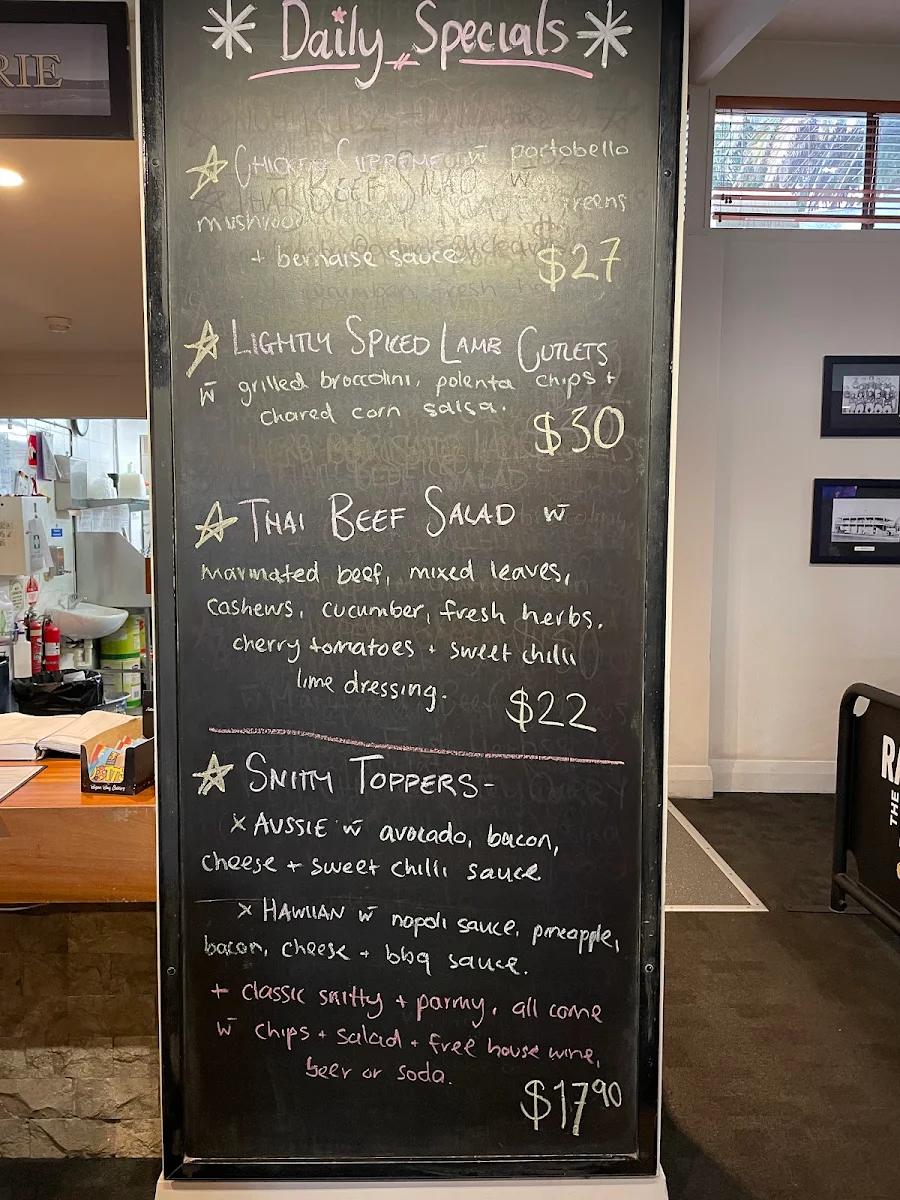 RIE
Daily Specials
CHICKEN SUPREME w̄ portobello
mushroo greens
+ bernaise sauce
$27
LIGHTLY SPICED LAMB CUTLETS
w̄ grilled broccolini, polenta chips +
chared corn salsa.
$30
THAI BEEF SALAD w̄
marinated beef, mixed leaves,
cashews, cucumber, fresh herbs.
cherry tomatoes + sweet chilli
lime dressing.
$22
SNITTY TOPPERS-
x AUSSIE w̄ avocado, bacon,
cheese + sweet chilli sauce
x HAWIIAN w̄ napoli sauce, pineapple,
bacon, cheese + bbq sauce.
+ classic snitty + parmy, all come
w̄ chips + salad + free house wine,
beer or soda.
$17⁹⁰
RA
THE